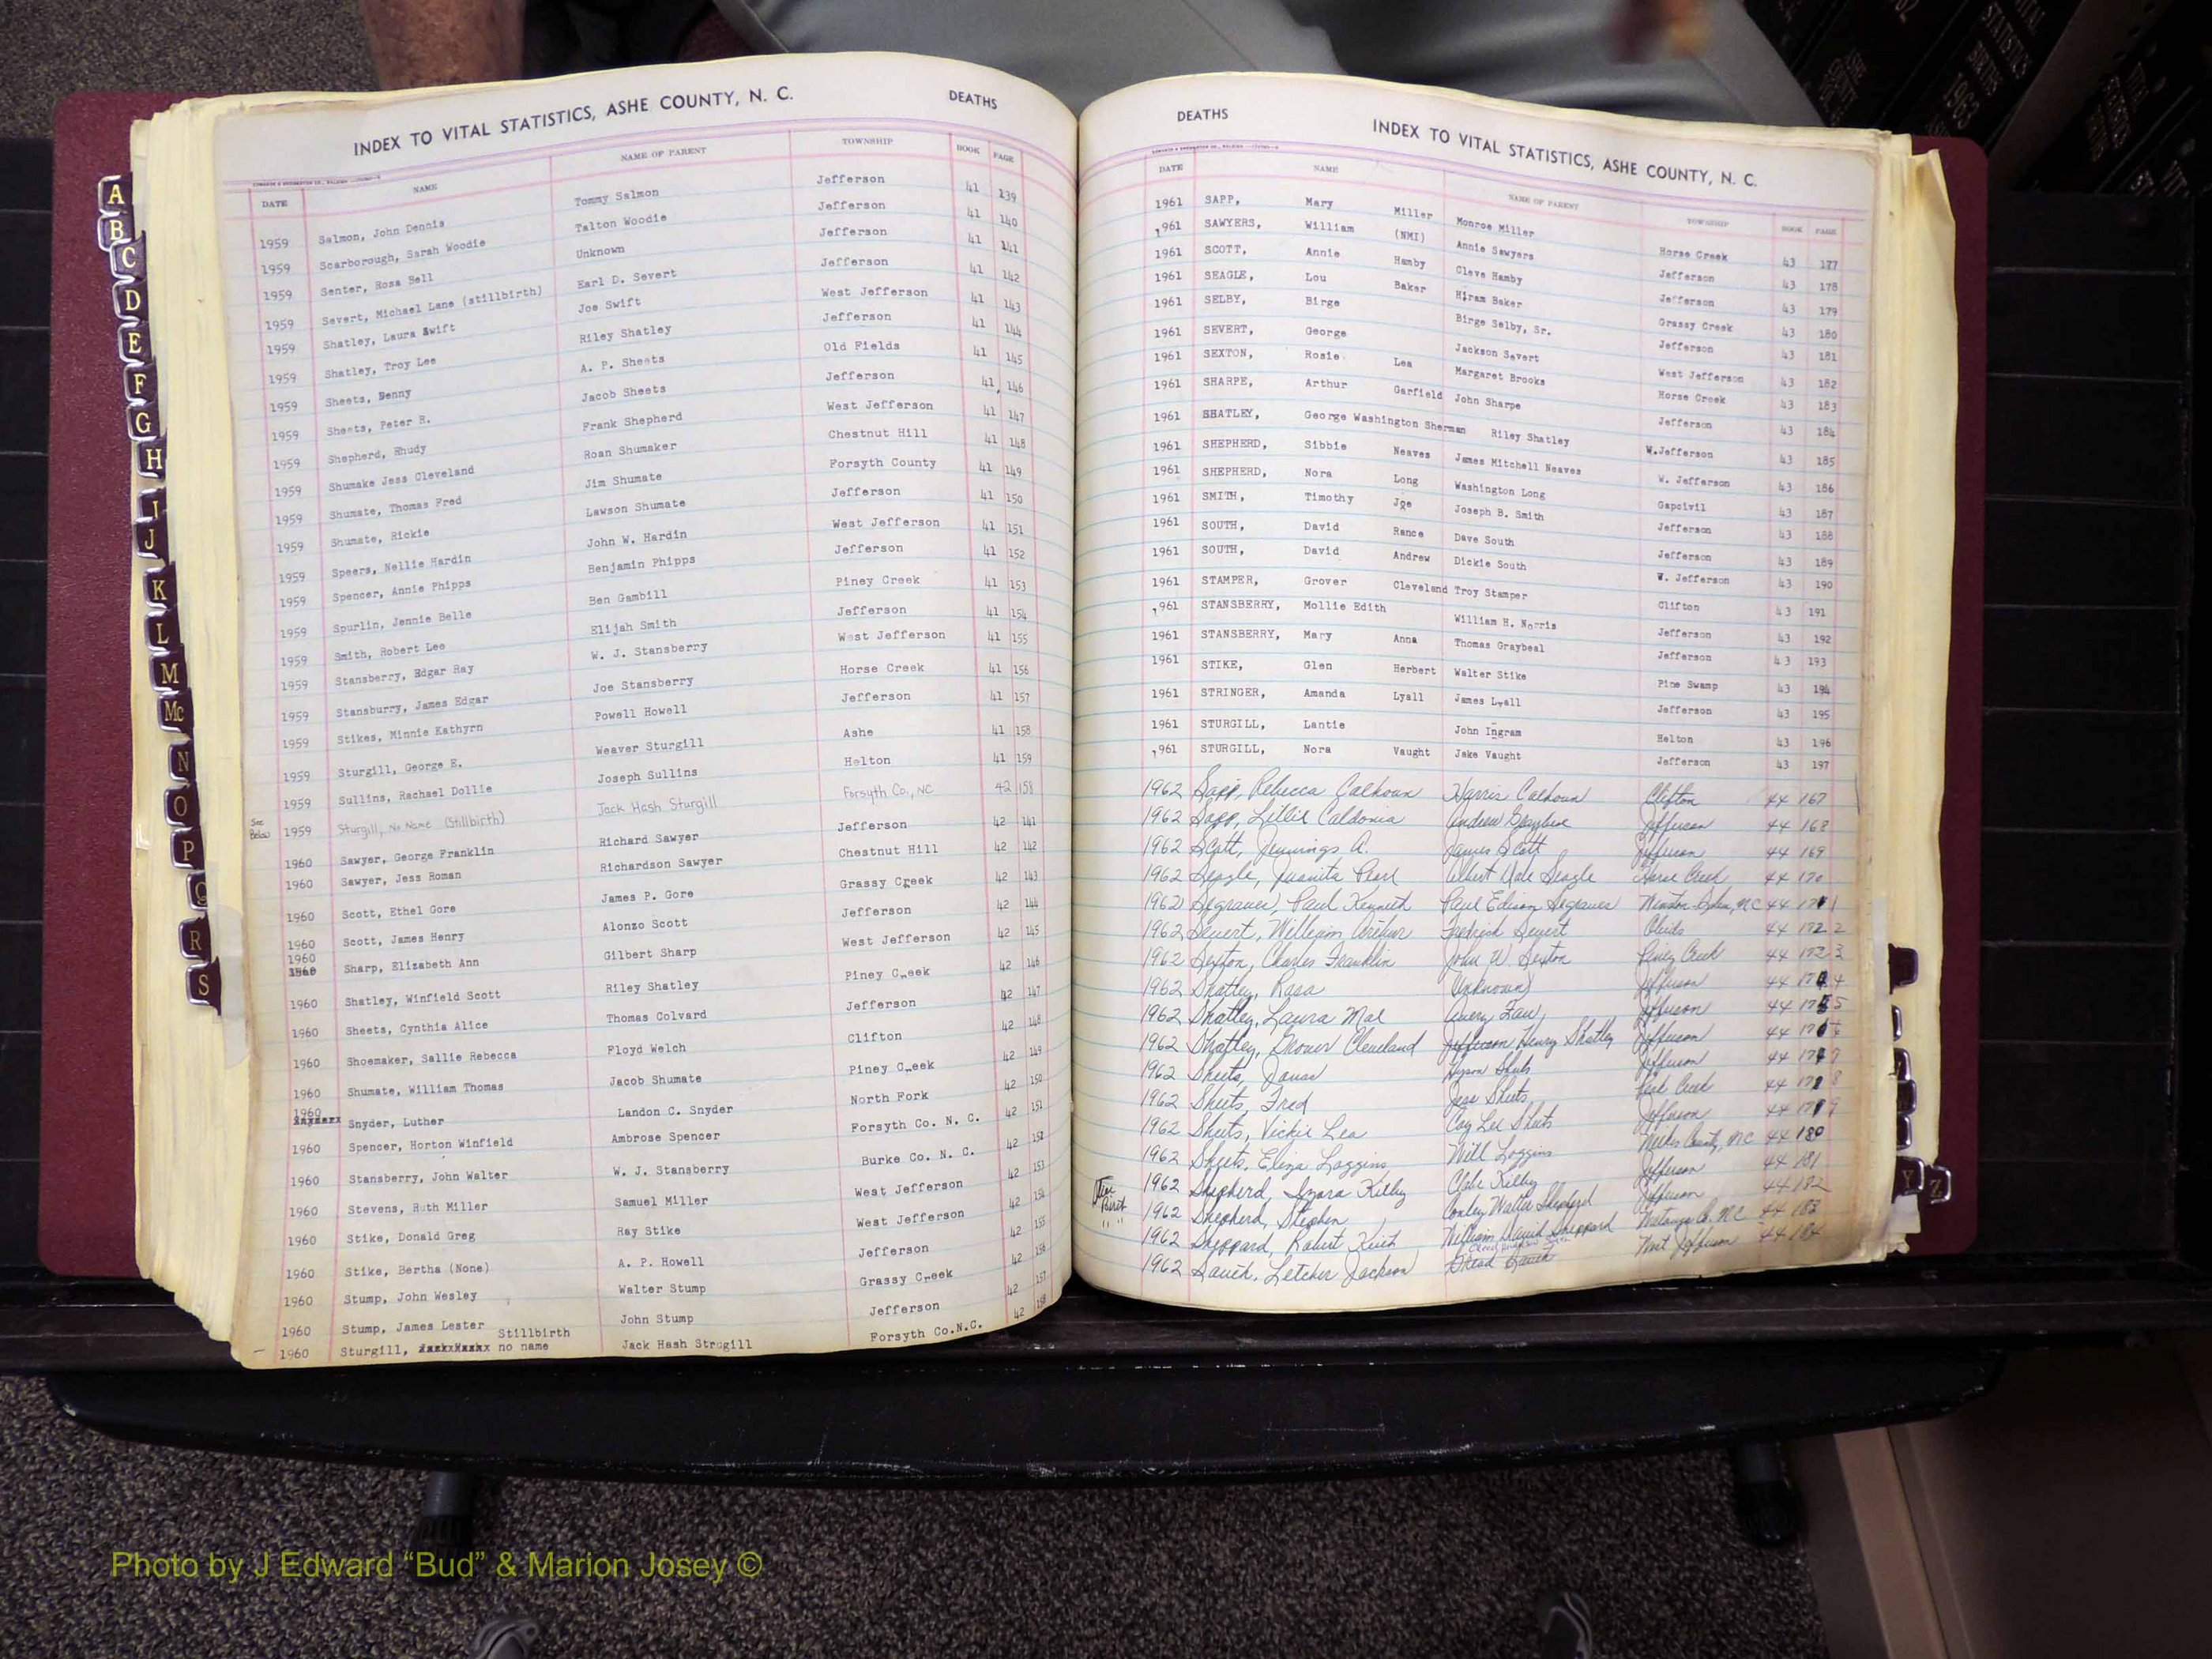 INDEX TO VITAL STATISTICS, ASHE COUNTY, N. C. DEATHS
DATE NAME NAME OF PARENT TOWNSHIP BOOK PAGE
1959 Salmon, John Dennis Tommy Salmon Jefferson 41 139
1959 Scarborough, Sarah Woodie Talton Woodie Jefferson 41 140
1959 Senter, Rosa Bell Unknown Jefferson 41 141
1959 Severt, Michael Lane (stillbirth) Earl D. Severt Jefferson 41 142
1959 Shatley, Laura Swift Joe Swift West Jefferson 41 143
1959 Shatley, Troy Lee Riley Shatley Jefferson 41 144
1959 Sheets, Denny A. P. Sheets Old Fields 41 145
1959 Sheets, Peter R. Jacob Sheets Jefferson 41 146
1959 Shepherd, Rhudy Frank Shepherd West Jefferson 41 147
1959 Shumake Jess Cleveland Roan Shumaker Chestnut Hill 41 148
1959 Shumate, Thomas Fred Jim Shumate Forsyth County 41 149
1959 Shumate, Rickie Lawson Shumate Jefferson 41 150
1959 Speers, Nellie Hardin John W. Hardin West Jefferson 41 151
1959 Spencer, Annie Phipps Benjamin Phipps Jefferson 41 152
1959 Spurlin, Jennie Belle Ben Gambill Piney Creek 41 153
1959 Smith, Robert Lee Elijah Smith Jefferson 41 154
1959 Stansberry, Edgar Ray W. J. Stansberry West Jefferson 41 155
1959 Stansburry, James Edgar Joe Stansberry Horse Creek 41 156
1959 Stikes, Minnie Kathyrn Powell Howell Jefferson 41 157
1959 Sturgill, George E. Weaver Sturgill Ashe 41 158
1959 Sullins, Rachael Dollie Joseph Sullins Helton 41 159
See Below 1959 Sturgill, No Name (Stillbirth) Jack Hash Sturgill Forsyth Co., NC 42 158
1960 Sawyer, George Franklin Richard Sawyer Jefferson 42 141
1960 Sawyer, Jess Roman Richardson Sawyer Chestnut Hill 42 142
1960 Scott, Ethel Gore James P. Gore Grassy Creek 42 143
1960 Scott, James Henry Alonzo Scott Jefferson 42 144
1960 Sharp, Elizabeth Ann Gilbert Sharp West Jefferson 42 145
1960 Shatley, Winfield Scott Riley Shatley Piney Creek 42 146
1960 Sheets, Cynthia Alice Thomas Colvard Jefferson 42 147
1960 Shoemaker, Sallie Rebecca Floyd Welch Clifton 42 148
1960 Shumate, William Thomas Jacob Shumate Piney Creek 42 149
1960 Snyder, Luther Landon C. Snyder North Fork 42 150
1960 Spencer, Horton Winfield Ambrose Spencer Forsyth Co. N. C. 42 151
1960 Stansberry, John Walter W. J. Stansberry Burke Co. N. C. 42 152
1960 Stevens, Ruth Miller Samuel Miller West Jefferson 42 153
1960 Stike, Donald Greg Ray Stike West Jefferson 42 154
1960 Stike, Bertha (None) A. P. Howell Jefferson 42 155
1960 Stump, John Wesley Walter Stump Grassy Creek 42 156
1960 Stump, James Lester John Stump Jefferson 42 157
1960 Sturgill, Stillbirth no name Jack Hash Strugill Forsyth Co.N.C. 42 158
DEATHS INDEX TO VITAL STATISTICS, ASHE COUNTY, N. C.
DATE NAME NAME OF PARENT TOWNSHIP BOOK PAGE
1961 SAPP, Mary Miller Monroe Miller Horse Creek 43 177
1961 SAWYERS, William (NMI) Annie Sawyers Jefferson 43 178
1961 SCOTT, Annie Hamby Cleve Hamby Jefferson 43 179
1961 SEAGLE, Lou Baker Hiram Baker Grassy Creek 43 180
1961 SELBY, Birge Birge Selby, Sr. Jefferson 43 181
1961 SEVERT, George Jackson Severt West Jefferson 43 182
1961 SEXTON, Rosie Lea Margaret Brooks Horse Creek 43 183
1961 SHARPE, Arthur Garfield John Sharpe Jefferson 43 184
1961 SHATLEY, George Washington Sherman Riley Shatley W.Jefferson 43 185
1961 SHEPHERD, Sibbie Neaves James Mitchell Neaves W. Jefferson 43 186
1961 SHEPHERD, Nora Long Washington Long Gapcivil 43 187
1961 SMITH, Timothy Joe Joseph B. Smith Jefferson 43 188
1961 SOUTH, David Rance Dave South Jefferson 43 189
1961 SOUTH, David Andrew Dickie South W. Jefferson 43 190
1961 STAMPER, Grover Cleveland Troy Stamper Clifton 43 191
1961 STANSBERRY, Mollie Edith William H. Norris Jefferson 43 192
1961 STANSBERRY, Mary Anna Thomas Graybeal Jefferson 43 193
1961 STIKE, Glen Herbert Walter Stike Pine Swamp 43 194
1961 STRINGER, Amanda Lyall James Lyall Jefferson 43 195
1961 STURGILL, Lantie John Ingram Helton 43 196
1961 STURGILL, Nora Vaught Jake Vaught Jefferson 43 197
1962 Sapp, Rebecca Calhoun Harris Calhoun Clifton 44 167
1962 Sapp, Lillie Caldonia Andrew Jefferson 44 168
1962 Scott, Jennings A. James Scott Jefferson 44 169
1962 Seagle, Juanita Pearl Albert Dale Seagle Horse Creek 44 170
1962 Segraves, Paul Kenneth Paul Edison Segraves Winston-Salem, NC 44 171
1962 Severt, William Arthur Fredrick Severt Obids 44 172
1962 Sexton, Charles Franklin John W. Sexton Piney Creek 44 173
1962 Shatley, Rosa Unknown Jefferson 44 174
1962 Shatley, Laura Mae Avery Faw Jefferson 44 175
1962 Shatley, Grover Cleveland Jefferson Henry Shatley Jefferson 44 176
1962 Sheets, Sheets Jefferson 44 177
1962 Sheets, Fred Jess Sheets Peak Creek 44 178
1962 Sheets, Vickie Lea Coy Lee Sheets Jefferson 44 179
1962 Sheets, Eliza Loggins Will Loggins Wilkes County, NC 44 180
1962 Shepherd, Kilby Kilby Jefferson 44 181
1962 Shepherd, Stephen Conley Walter Shepherd Jefferson 44 182
1962 Sheppard, Robert Keith William David Sheppard Watauga Co. NC 44 183
1962 South, Letcher Jackson West Jefferson 44 184
A
B
C
D
E
F
G
H
I
J
K
L
M
Mc
N
O
P
Q
R
S
Y
Z
VITAL STATISTICS BIRTHS 1963
Photo by J Edward “Bud” & Marion Josey ©